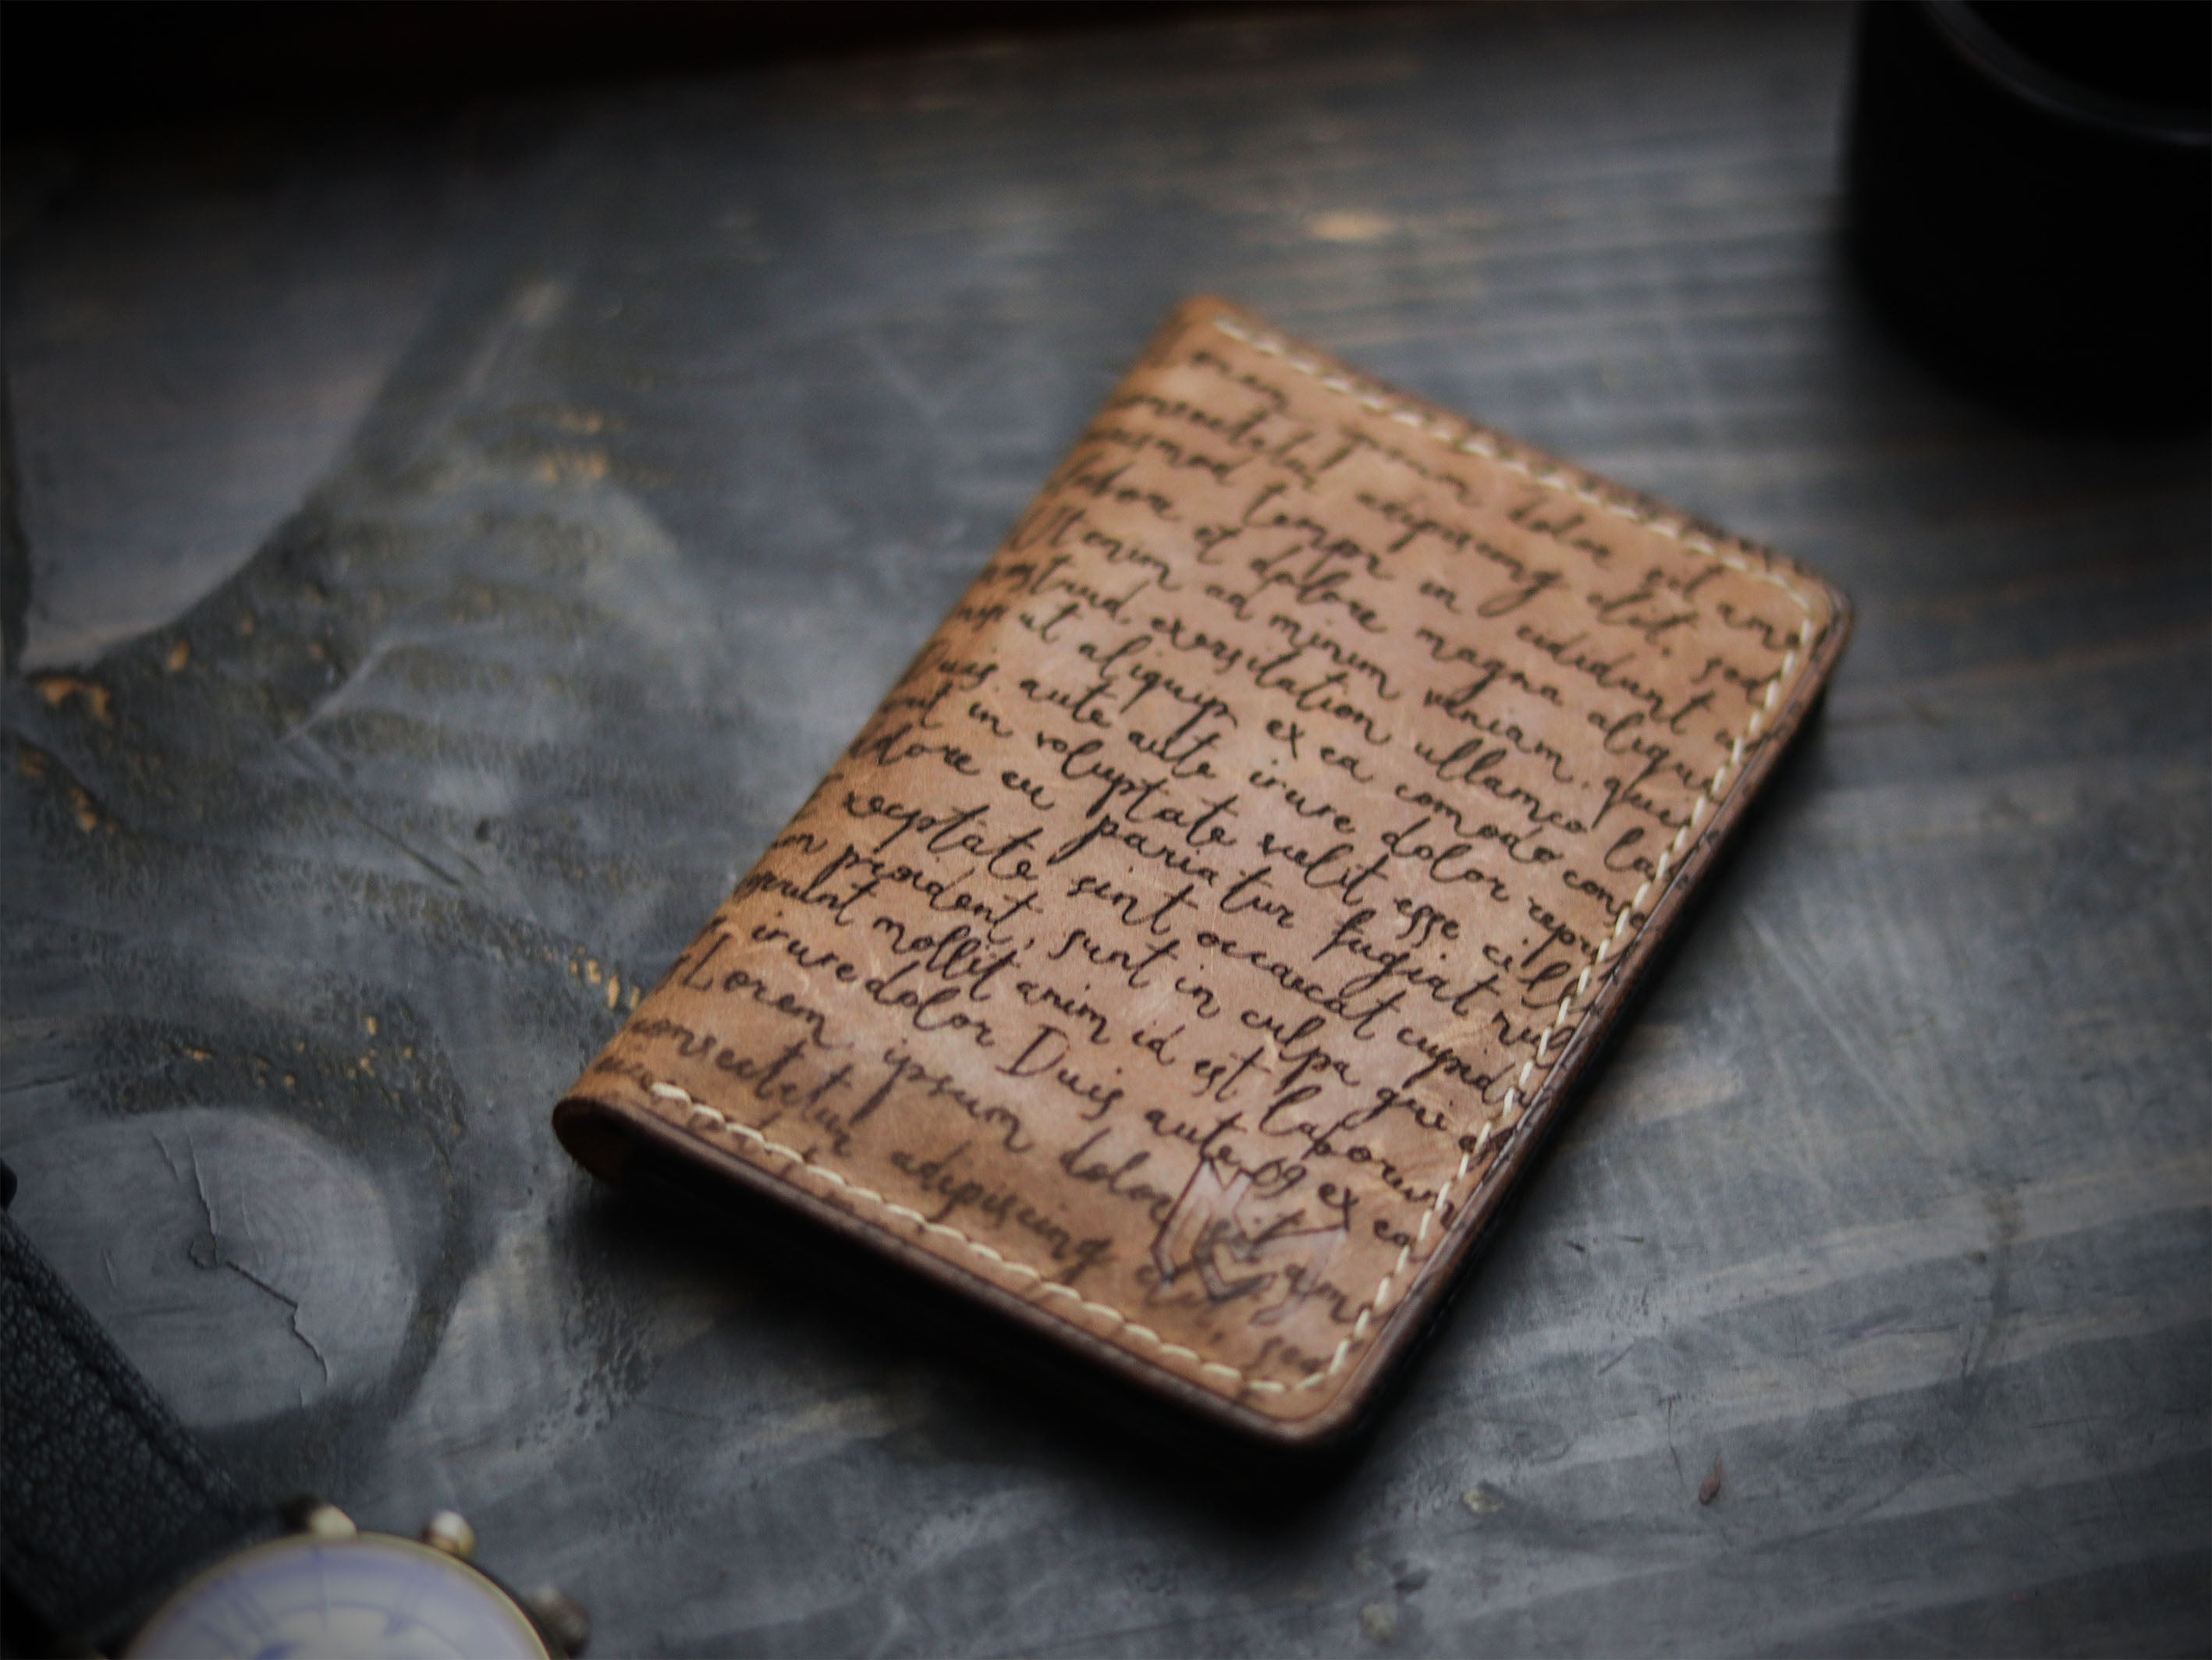 orem ipsum dolor sit ame
onsectetur adipiscing elit, sed
eiusmod tempor in cididunt u
labore et dolore magna aliqua
Ut enim ad minim veniam, quis
nostrud exersitation ullamco la
ut aliquip ex ea comodo conse
Duis aute aute irure dolor repre
in voluptate velit esse cill
dore eu pariatur fugiat null
xceptate sint occaecat cupida
on proident, sunt in culpa qui o
eserunt mollit anim id est laborum
irure dolor Duis aute ex ea
Lorem ipsum dolor sit am
consectetur adipiscing elit, sed